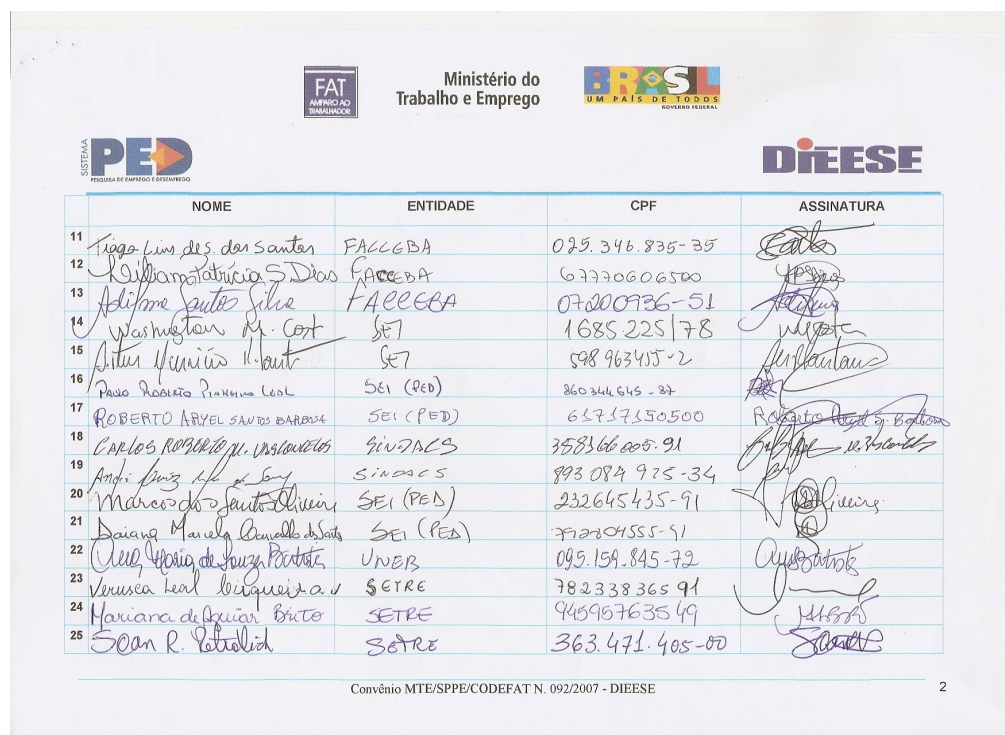 FAT
AMPARO AO
TRABALHADOR
Ministério do
Trabalho e Emprego
BRASIL
UM PAÍS DE TODOS
GOVERNO FEDERAL
SISTEMA
PED
PESQUISA DE EMPREGO E DESEMPREGO
DIEESE
NOME ENTIDADE CPF ASSINATURA
11 Tiago Lins des. dos Santos FACCEBA 025.346.835-35
12 Patrícia S Dias FACCEBA 67770606500
13 Santos Silva FACCEBA 07200936-51
14 Washington M. Cost SEI 1685.225/78
15 SEI 598 963455-2
16 Paulo Roberto Leal SEI (PED) 860344645-87
17 ROBERTO ARYEL SANTOS BARBOSA SEI (PED) 61717150500 Roberto
18 CARLOS ROBERTO M. VASCONCELOS SINDACS 358166005.91
19 André SINDACS 893 084 925-34
20 Marcos dos Santos Oliveira SEI (PED) 232645435-91
21 Daiana Marcela Carvalho dos Santos SEI (PED)
22 Ana Maria de Souza Batista UNEB 095.159.845-72
23 Verusca Leal SETRE 782338365 91
24 Mariana de Aguiar Brito SETRE 94595763549
25 Sean R. SETRE 363.471.405-00
Convênio MTE/SPPE/CODEFAT N. 092/2007 - DIEESE
2